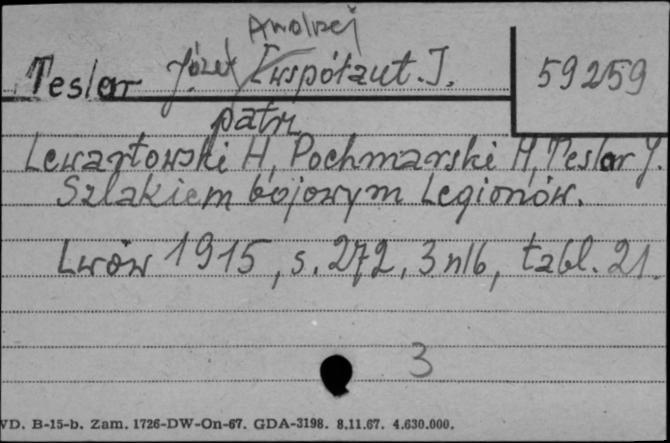 Andrzej
Teslar Józef [współaut.].
59259
patrz
Lewartowski H, Pochmarski H, Teslar J.
Szlakiem bojowym Legionów.
Lwów 1915, s. 272, 3 nlb, tabl. 21.
3
VD. B-15-b. Zam. 1726-DW-On-67. GDA-3198. 8.11.67. 4.630.000.